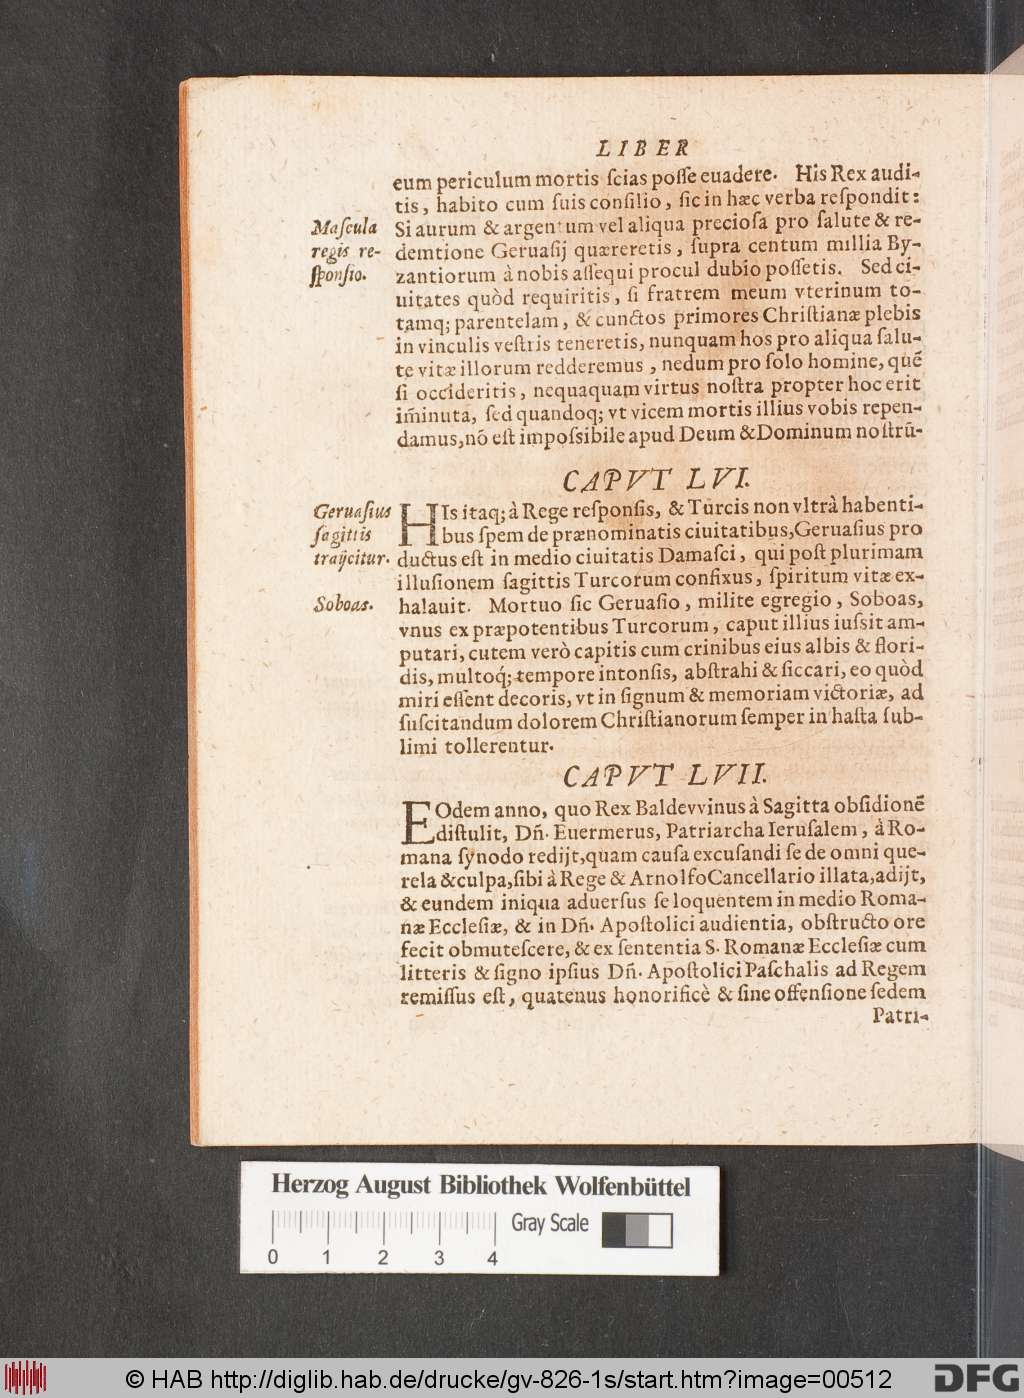 LIBER
eum periculum mortis ſcias poſſe euadere. His Rex audi-
tis, habito cum ſuis conſilio, ſic in hæc verba reſpondit:
Maſcula
regis re-
ſponſio.
Si aurum & argentum vel aliqua precioſa pro ſalute & re-
demtione Geruaſij quæreretis, ſupra centum millia By-
zantiorum à nobis aſſequi procul dubio poſſetis. Sed ci-
uitates quòd requiritis, ſi fratrem meum vterinum to-
tamq; parentelam, & cunctos primores Chriſtianæ plebis
in vinculis veſtris teneretis, nunquam hos pro aliqua ſalu-
te vitæ illorum redderemus, nedum pro ſolo homine, quē
ſi occideritis, nequaquam virtus noſtra propter hoc erit
im̄inuta, ſed quandoq; vt vicem mortis illius vobis repen-
damus, nō eſt impoſsibile apud Deum & Dominum noſtrū.
CAPVT LVI.
Geruaſius
ſagittis
traijcitur.
HIs itaq; à Rege reſponſis, & Turcis non vltrà habenti-
bus ſpem de prænominatis ciuitatibus, Geruaſius pro
ductus eſt in medio ciuitatis Damaſci, qui poſt plurimam
illuſionem ſagittis Turcorum confixus, ſpiritum vitæ ex-
Soboas.
halauit. Mortuo ſic Geruaſio, milite egregio, Soboas,
vnus ex præpotentibus Turcorum, caput illius iuſsit am-
putari, cutem verò capitis cum crinibus eius albis & flori-
dis, multoq́; tempore intonſis, abſtrahi & ſiccari, eo quòd
miri eſſent decoris, vt in ſignum & memoriam victoriæ, ad
ſuſcitandum dolorem Chriſtianorum ſemper in haſta ſub-
limi tollerentur.
CAPVT LVII.
EOdem anno, quo Rex Baldevvinus à Sagitta obſidionē
diſtulit, Dn̄. Euermerus, Patriarcha Ieruſalem, à Ro-
mana ſynodo redijt, quam cauſa excuſandi ſe de omni que-
rela & culpa, ſibi à Rege & Arnolfo Cancellario illata, adijt,
& eundem iniqua aduerſus ſe loquentem in medio Roma-
næ Eccleſiæ, & in Dn̄. Apoſtolici audientia, obſtructo ore
fecit obmuteſcere, & ex ſententia S. Romanæ Eccleſiæ cum
litteris & ſigno ipſius Dn̄. Apoſtolici Paſchalis ad Regem
remiſſus eſt, quatenus honorificè & ſine offenſione ſedem
Patri-
Herzog August Bibliothek Wolfenbüttel
Gray Scale
0 1 2 3 4
© HAB http://diglib.hab.de/drucke/gv-826-1s/start.htm?image=00512
DFG